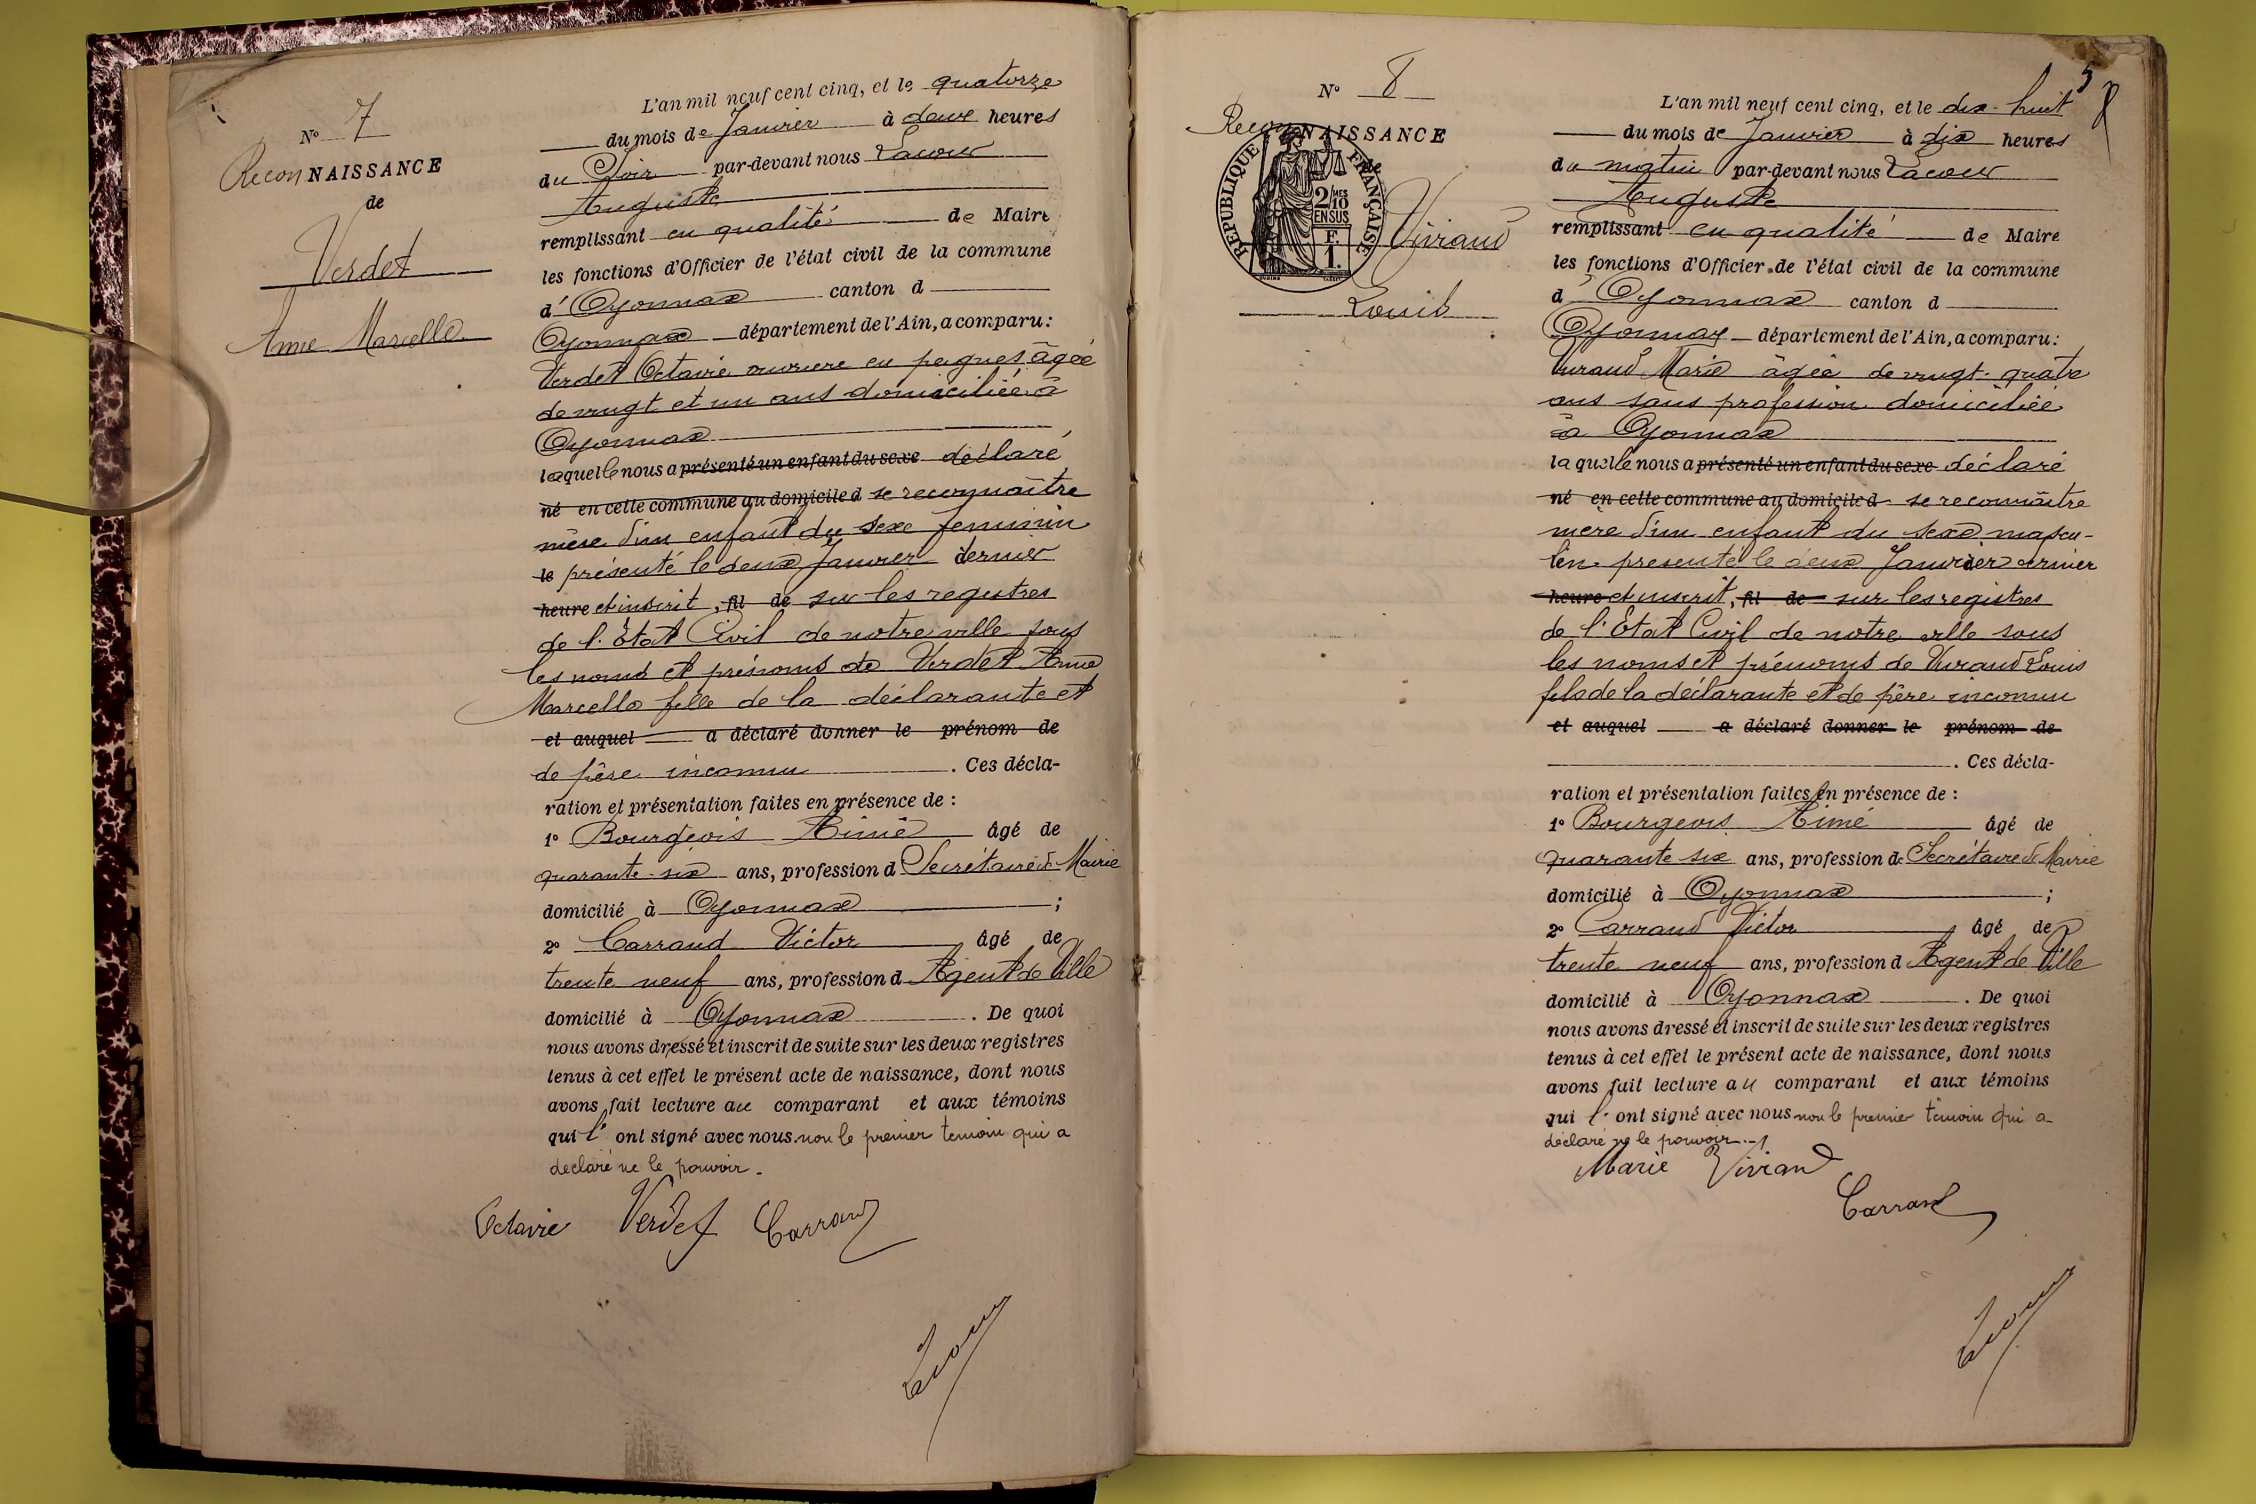 N° 7
ReconNAISSANCE
de
Verdet
Anne Marcelle
L'an mil neuf cent cinq, et le quatorze
du mois de Janvier à deux heures
du Soir par-devant nous Lacour
Auguste
remplissant en qualité de Maire
les fonctions d'Officier de l'état civil de la commune
d' Oyonnax canton d
Oyonnax département de l'Ain, a comparu:
Verdet Octavie ouvrière en peignes âgée
de vingt et un ans domiciliée à
Oyonnax
laquelle nous a présenté un enfant du sexe déclaré
né en cette commune au domicile d se reconnaître
mère d'un enfant du sexe feminin
le présenté le deux Janvier dernier
heure et inscrit, fil de sur les registres
de l'Etat Civil de notre ville sous
les noms et prénoms de Verdet Anne
Marcelle fille de la déclarante et
et auquel a déclaré donner le prénom de
de père inconnu . Ces décla-
ration et présentation faites en présence de :
1° Bourgeois Aimé âgé de
quarante-six ans, profession d Secrétaire de Mairie
domicilié à Oyonnax ;
2° Carraud Victor âgé de
trente neuf ans, profession d Agent de Ville
domicilié à Oyonnax . De quoi
nous avons dressé et inscrit de suite sur les deux registres
tenus à cet effet le présent acte de naissance, dont nous
avons fait lecture au comparant et aux témoins
qui l' ont signé avec nous non le premier temoin qui a
declaré ne le pouvoir.
Octavie Verdet Carraud
Lacour
5
N° 8
ReconNAISSANCE
de
REPUBLIQUE FRANÇAISE
2/10 MES
EN SUS
F.
1.
Viviand
Louis
L'an mil neuf cent cinq, et le dix-huit
du mois de Janvier à dix heures
du matin par-devant nous Lacour
Auguste
remplissant en qualité de Maire
les fonctions d'Officier de l'état civil de la commune
d' Oyonnax canton d
Oyonnax département de l'Ain, a comparu:
Viviand Marie âgée de vingt-quatre
ans sans profession domiciliée
à Oyonnax
laquelle nous a présenté un enfant du sexe déclaré
né en cette commune au domicile d se reconnaître
mère d'un enfant du sexe mascu-
lin présenté le deux Janvier dernier
heure et inscrit, fil de sur les registres
de l'Etat Civil de notre ville sous
les noms et prénoms de Viviand Louis
fils de la déclarante et de père inconnu
et auquel a déclaré donner le prénom de
. Ces décla-
ration et présentation faites en présence de :
1° Bourgeois Aimé âgé de
quarante six ans, profession de Secrétaire de Mairie
domicilié à Oyonnax ;
2° Carraud Victor âgé de
trente neuf ans, profession d Agent de Ville
domicilié à Oyonnax . De quoi
nous avons dressé et inscrit de suite sur les deux registres
tenus à cet effet le présent acte de naissance, dont nous
avons fait lecture au comparant et aux témoins
qui l' ont signé avec nous non le premier témoin qui a
déclaré ne le pouvoir.
Marie Viviand
Carraud
Lacour